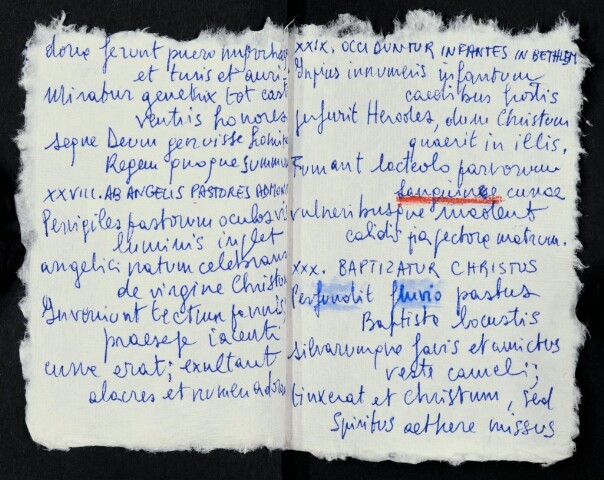 dona ferunt puero
et turis et auri;
Miratur genetrix tot casti
ventris honores
seque Deum genuisse
Regem quoque summum
XXVIII. AB ANGELIS PASTORES ADMON
Pervigiles pastorum oculos vis
luminis inplet
angelici natum celebrans
de virgine Christum
Inveniunt tectum pannis;
praesepe iacenti
cuna erat; exultant
alacres et numen adora
XXIX. OCCIDUNTUR INFANTES IN BETHLEM
Inpius innumeris infantum
caedibus hostis
perfurit Herodes, dum Christum
quaerit in illis.
Fumant lacteolo parvorum
sanguine cunae
vulneribusque madent
calidis pia pectora matrum.
XXX. BAPTIZATUR CHRISTUS
Perfundit fluvio pastus
Baptista locustis
silvarumque favis et amictus
veste cameli;
tinxerat et Christum, sed
Spiritus aethere missus